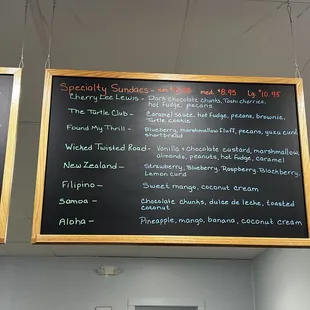 Specialty Sundaes - med. $8.95 Lg. $10.95
Cherry Lee Lewis - Dark chocolate chunks, Tosh cherries,
hot fudge, pecans
The Turtle Club - Caramel sauce, hot fudge, pecans, brownie,
Turtle cookie
Found My Thrill - Blueberry, marshmallow fluff, pecans, yuzu curd
shortbread
Wicked Twisted Road - Vanilla + chocolate custard, marshmallow,
almonds, peanuts, hot fudge, caramel
New Zealand - Strawberry, Blueberry, Raspberry, Blackberry,
Lemon curd
Filipino - Sweet mango, coconut cream
Samoa - Chocolate chunks, dulce de leche, toasted
coconut
Aloha - Pineapple, mango, banana, coconut cream